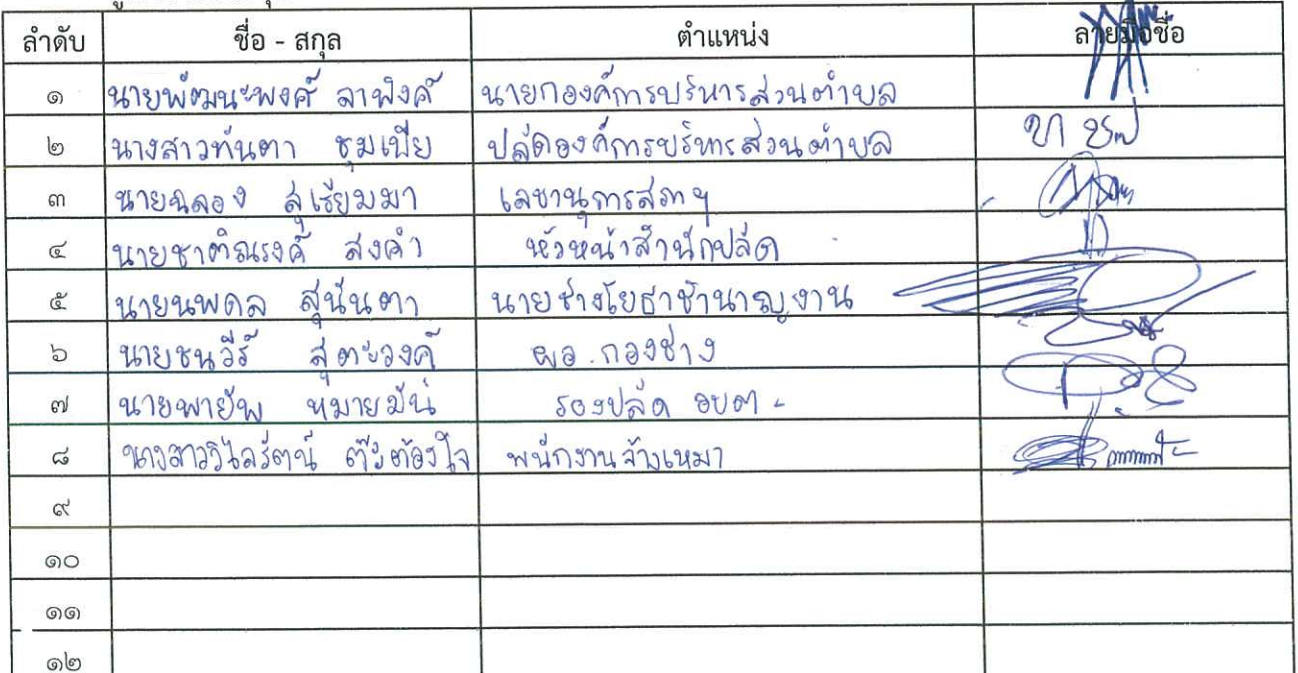 ลำดับ ชื่อ - สกุล ตำแหน่ง ลายมือชื่อ
๑ นายพัฒนะพงศ์ ลาพิงค์ นายกองค์การบริหารส่วนตำบล
๒ นางสาวทันตา ชุมเปีย ปลัดองค์การบริหารส่วนตำบล
๓ นายฉลอง สุเรียมมา เลขานุการสภาฯ
๔ นายชาติณรงค์ สงคำ หัวหน้าสำนักปลัด
๕ นายนพดล สุนันตา นายช่างโยธาชำนาญงาน
๖ นายชนวีร์ สุตะวงค์ ผอ.กองช่าง
๗ นายพายัพ หมายมั่น รองปลัด อบต.
๘ นางสาววิไลรัตน์ ต๊ะต้องใจ พนักงานจ้างเหมา
๙
๑๐
๑๑
๑๒